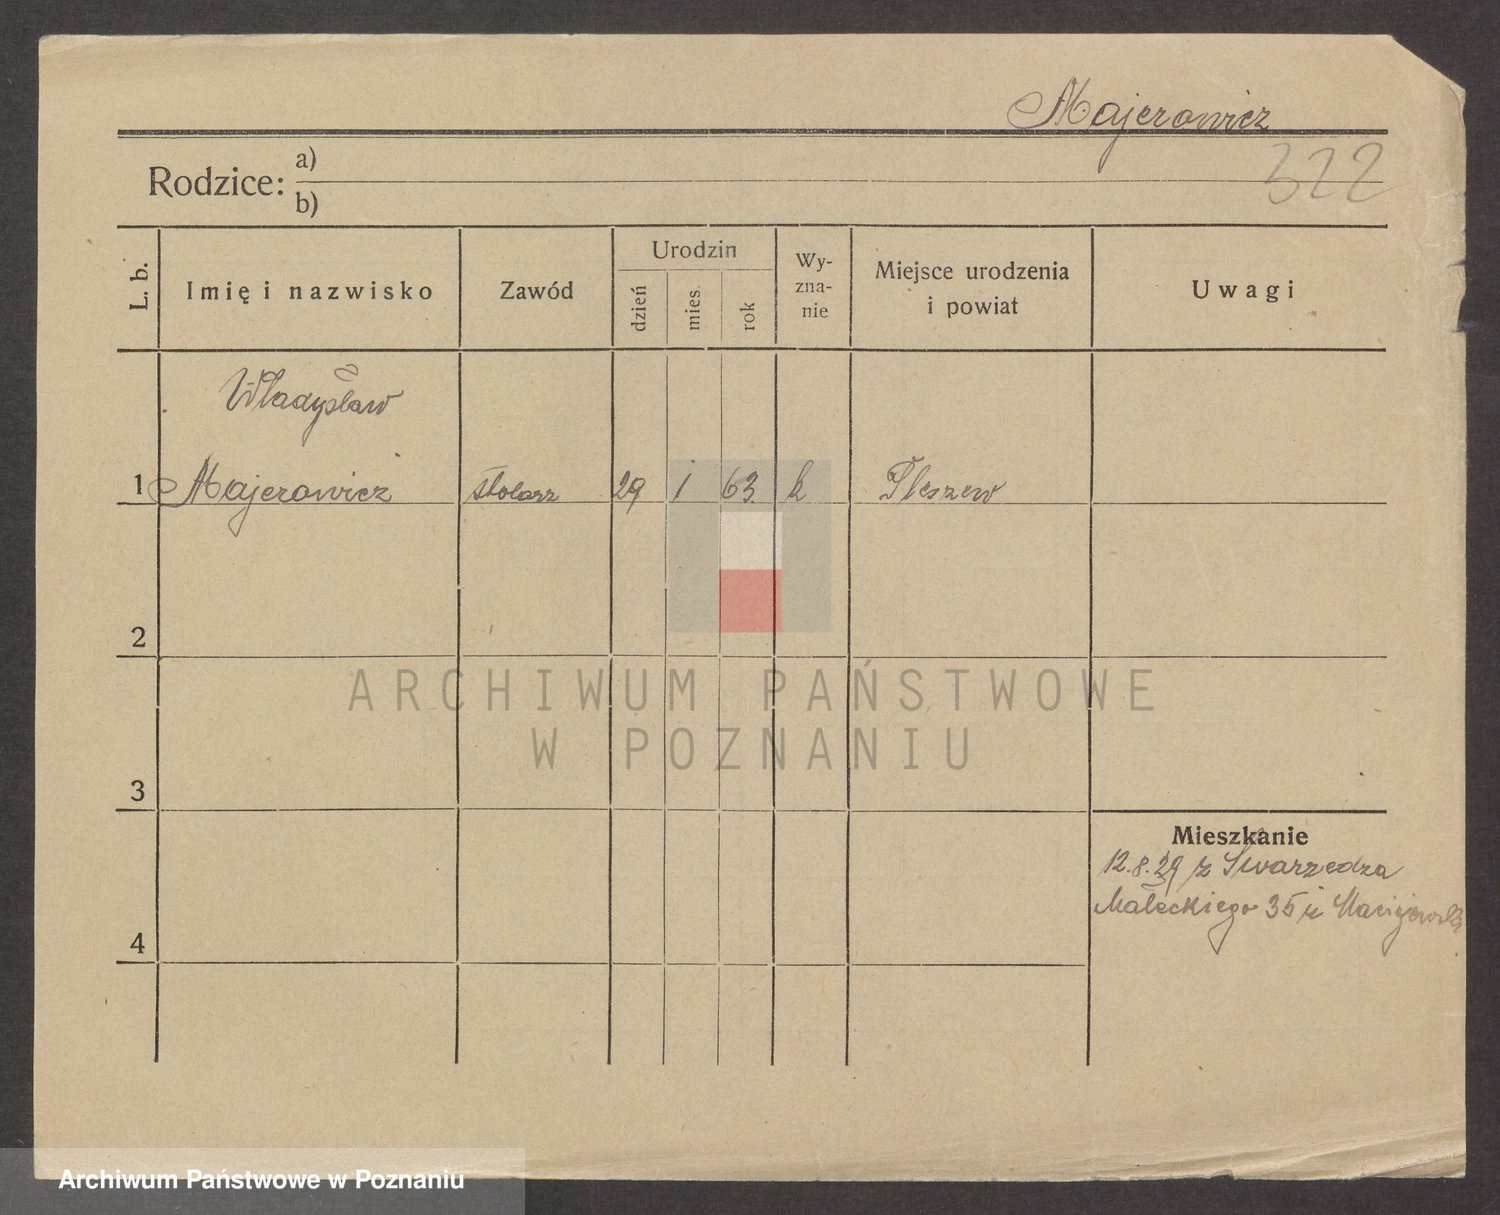 Majerowicz
322
Rodzice: a)
b)
L. b.
Imię i nazwisko
Zawód
Urodzin
dzień
mies.
rok
Wy-
zna-
nie
Miejsce urodzenia
i powiat
Uwagi
Władysław
1 Majerowicz stolarz 29 i 63 k Pleszew
2
3
4
Mieszkanie
12.8.29 z Swarzędza
Małeckiego 35
ARCHIWUM PAŃSTWOWE
W POZNANIU
Archiwum Państwowe w Poznaniu